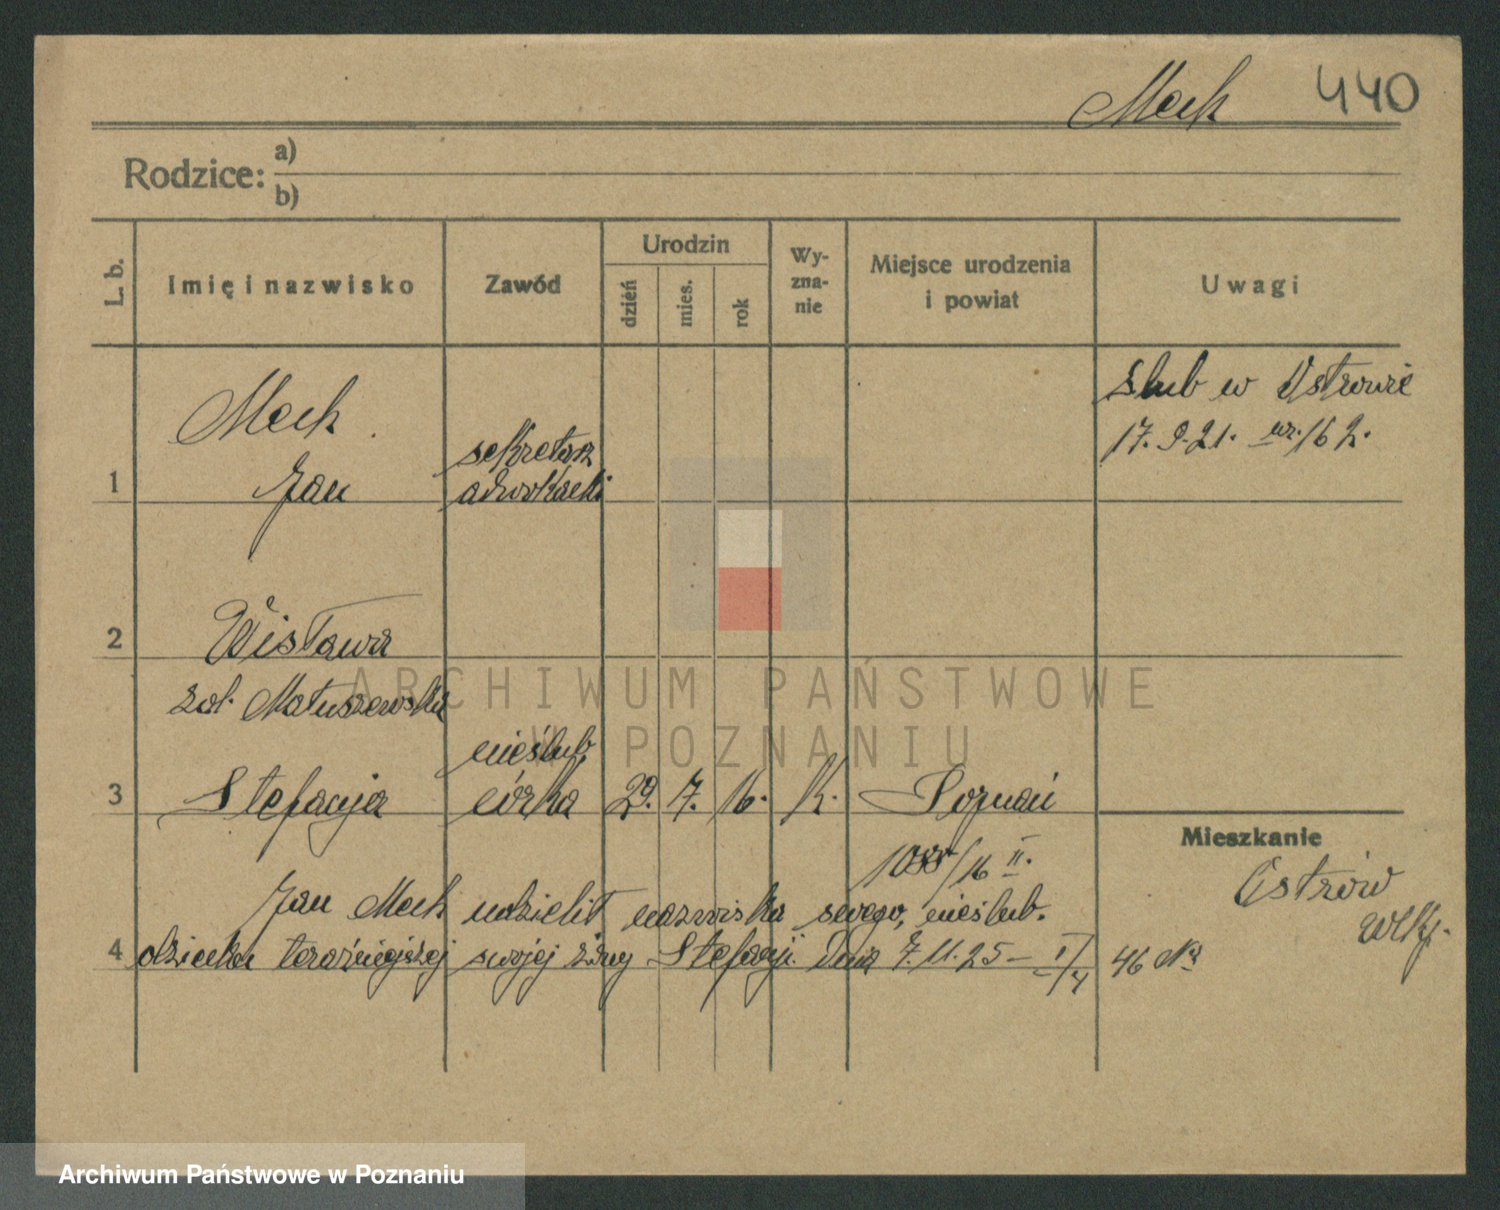 Mech 440
Rodzice: a)
b)
L. b.
Imię i nazwisko
Zawód
Urodzin
dzień
mies.
rok
Wy-
zna-
nie
Miejsce urodzenia
i powiat
Uwagi
Mech
1 Jan
sekretarz
adwokacki
Ślub w Ostrowie
17. 9. 21. nr. 162.
2 Wisława
zd. Matuszewska
nieślub.
3 Stefanja córka 29. 7. 16. k. Poznań
1088/16 II.
Mieszkanie
Ostrów
Wlkp.
Jan Mech udzielił nazwiska swego, nieślub.
4 dziecku teraźniejszej swojej żony Stefanji. Dnia 7. 11. 25 –
46
ARCHIWUM PAŃSTWOWE
W POZNANIU
Archiwum Państwowe w Poznaniu